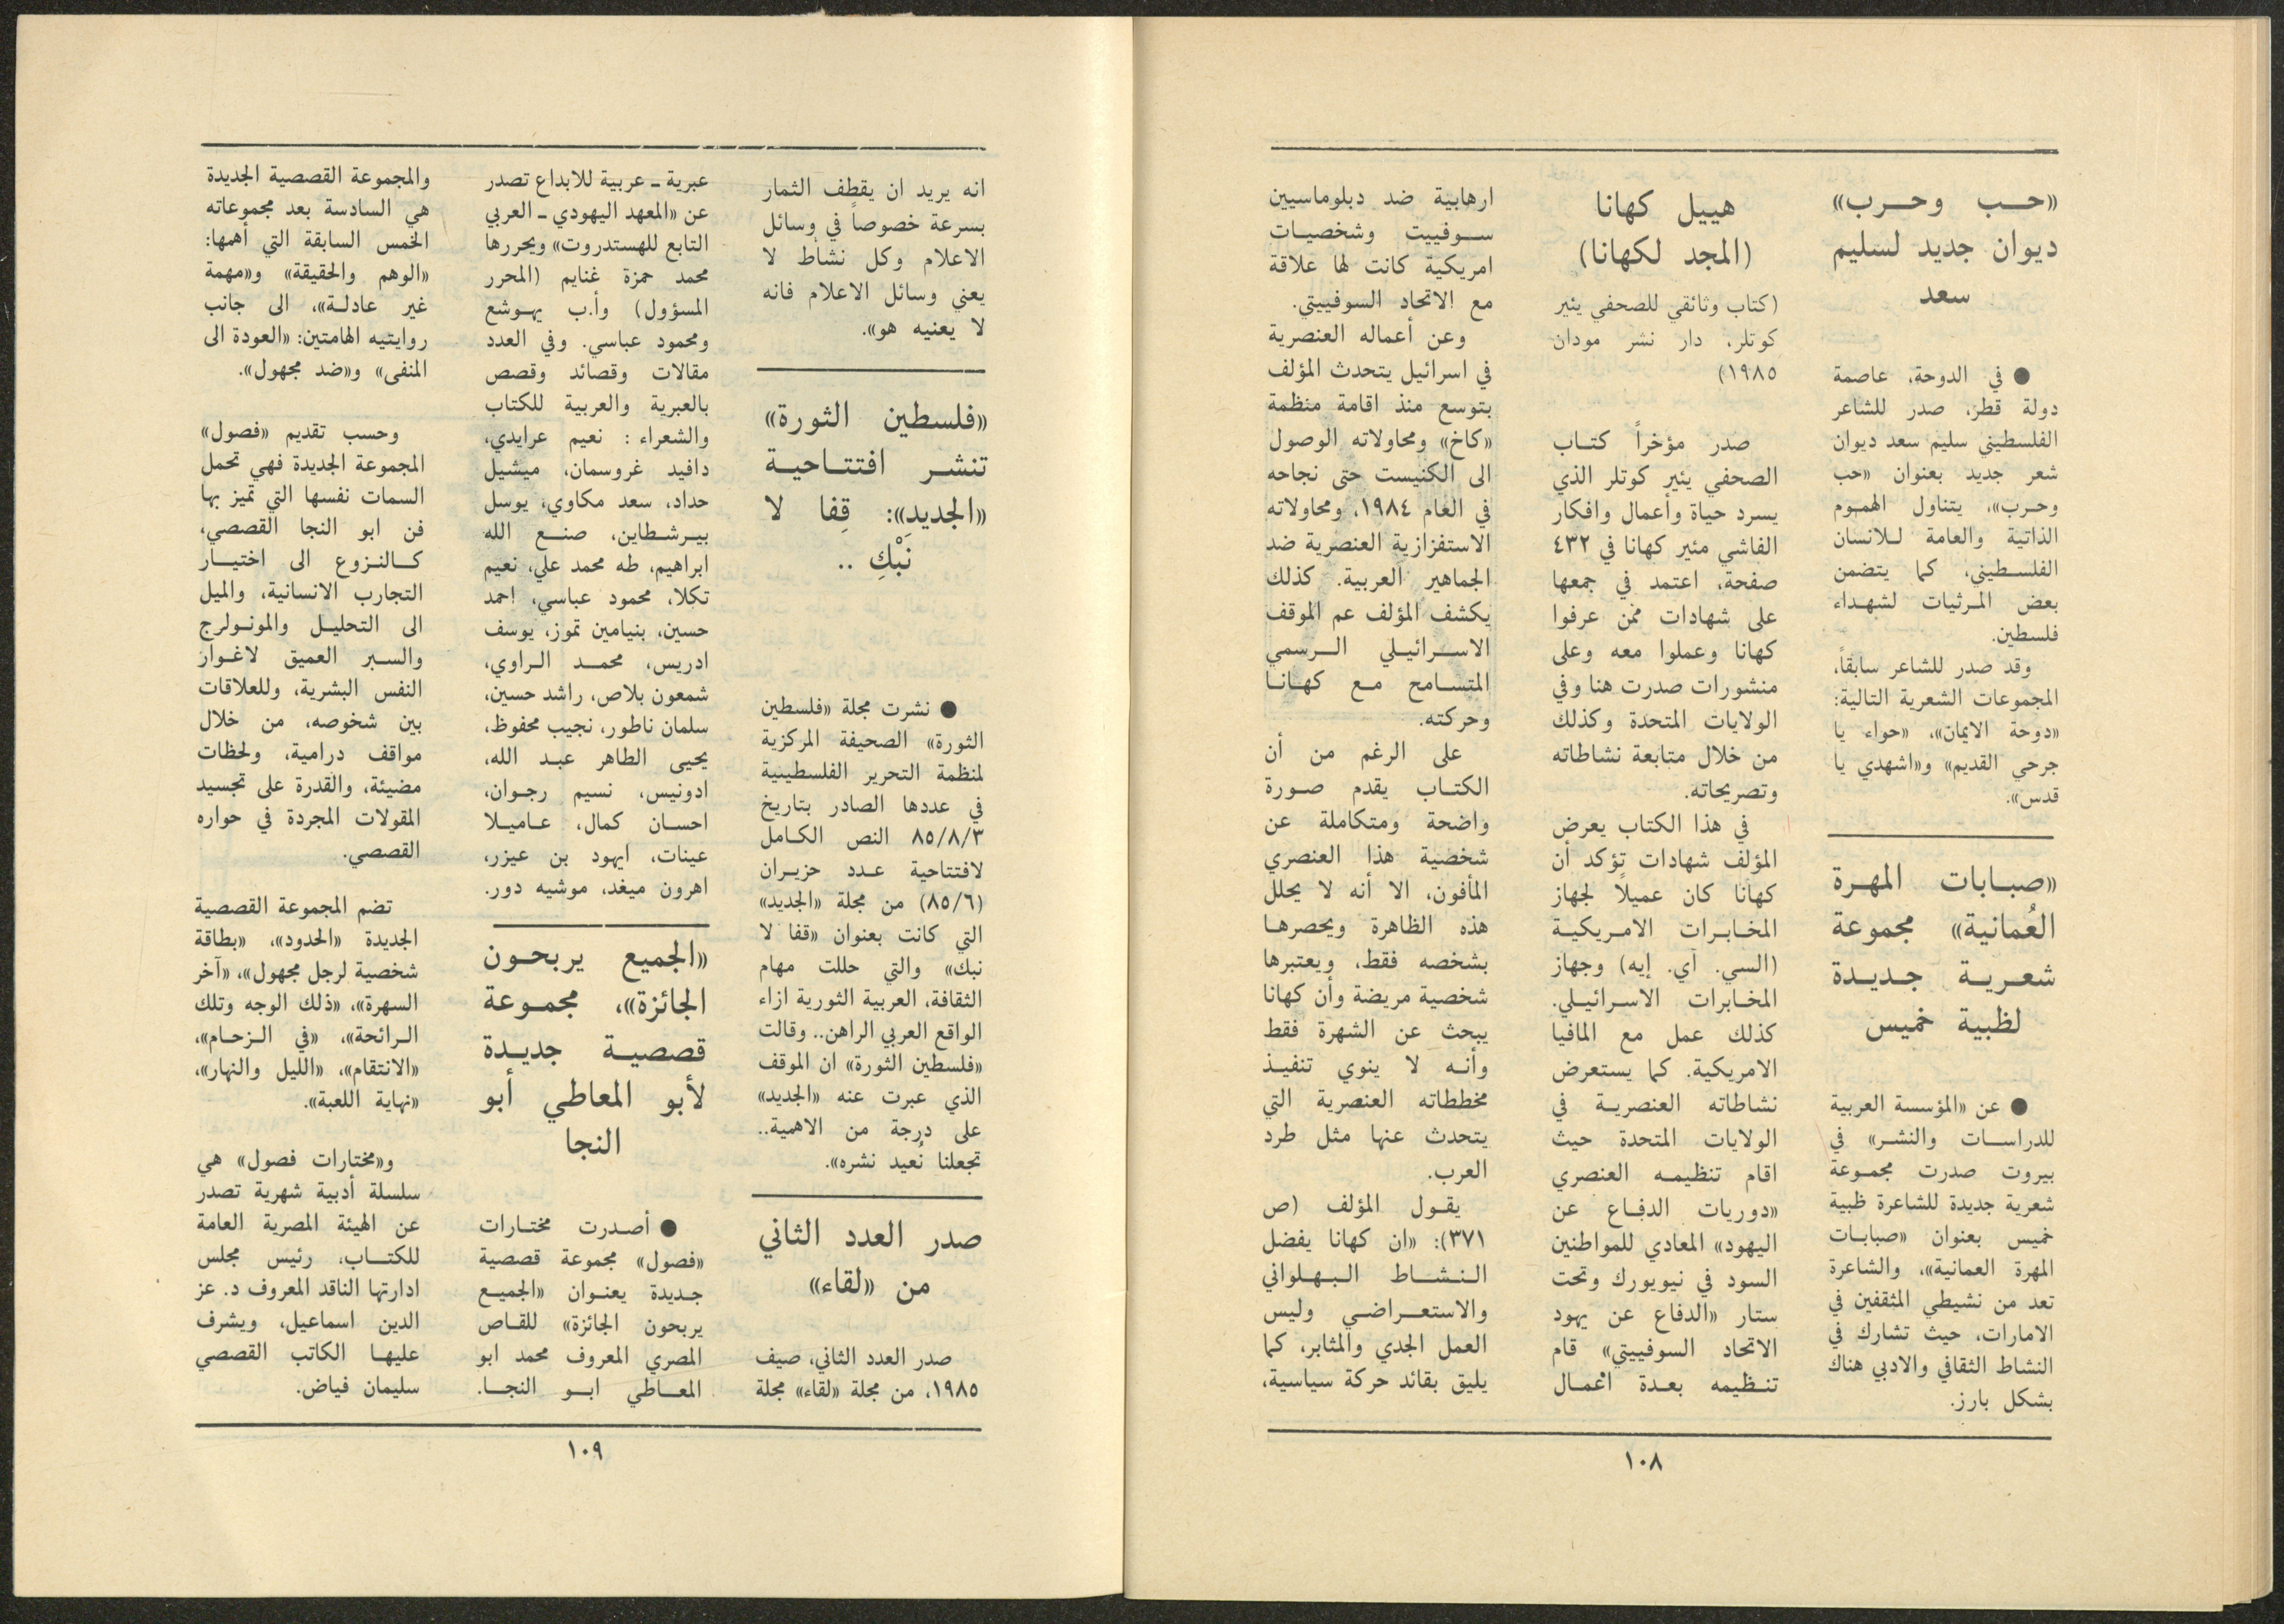 «حب وحرب»
ديوان جديد لسليم
سعد
● في الدوحة، عاصمة
دولة قطر، صدر للشاعر
الفلسطيني سليم سعد ديوان
شعر جديد بعنوان «حب
وحرب»، يتناول الهموم
الذاتية والعامة للانسان
الفلسطيني، كما يتضمن
بعض المرثيات لشهداء
فلسطين.
وقد صدر للشاعر سابقاً،
المجموعات الشعرية التالية:
«دوحة الايمان»، «حواء يا
جرحي القديم» و«اشهدي يا
قدس».
«صبابات المهرة
العُمانية» مجموعة
شعرية جديدة
لظبية خميس
● عن «المؤسسة العربية
للدراسات والنشر» في
بيروت صدرت مجموعة
شعرية جديدة للشاعرة ظبية
خميس بعنوان «صبابات
المهرة العمانية»، والشاعرة
تعد من نشيطي المثقفين في
الامارات، حيث تشارك في
النشاط الثقافي والادبي هناك
بشكل بارز.
هييل كهانا
(المجد لكهانا)
(كتاب وثائقي للصحفي يئير
كوتلر، دار نشر مودان
١٩٨٥)
صدر مؤخراً كتاب
الصحفي يئير كوتلر الذي
يسرد حياة وأعمال وافكار
الفاشي مئير كهانا في ٤٣٢
صفحة، اعتمد في جمعها
على شهادات ممّن عرفوا
كهانا وعملوا معه وعلى
منشورات صدرت هنا وفي
الولايات المتحدة وكذلك
من خلال متابعة نشاطاته
وتصريحاته.
في هذا الكتاب يعرض
المؤلف شهادات تؤكد أن
كهانا كان عميلاً لجهاز
المخابرات الامريكية
(السي. آي. إيه) وجهاز
المخابرات الاسرائيلي.
كذلك عمل مع المافيا
الامريكية. كما يستعرض
نشاطاته العنصرية في
الولايات المتحدة حيث
اقام تنظيمه العنصري
«دوريات الدفاع عن
اليهود» المعادي للمواطنين
السود في نيويورك وتحت
ستار «الدفاع عن يهود
الاتحاد السوفييتي» قام
تنظيمه بعدة اعمال
ارهابية ضد دبلوماسيين
سوفييت وشخصيات
امريكية كانت لها علاقة
مع الاتحاد السوفييتي.
وعن أعماله العنصرية
في اسرائيل يتحدث المؤلف
بتوسع منذ اقامة منظمة
«كاخ» ومحاولاته الوصول
الى الكنيست حتى نجاحه
في العام ١٩٨٤، ومحاولاته
الاستفزازية العنصرية ضد
الجماهير العربية. كذلك
يكشف المؤلف عم الموقف
الاسرائيلي الرسمي
المتسامح مع كهانا
وحركته.
على الرغم من أن
الكتاب يقدم صورة
واضحة ومتكاملة عن
شخصية هذا العنصري
المأفون، الا أنه لا يحلل
هذه الظاهرة ويحصرها
بشخصه فقط، ويعتبرها
شخصية مريضة وأن كهانا
يبحث عن الشهرة فقط
وأنه لا ينوي تنفيذ
مخططاته العنصرية التي
يتحدث عنها مثل طرد
العرب.
يقول المؤلف (ص
٣٧١): «ان كهانا يفضل
النشاط البهلواني
والاستعراضي وليس
العمل الجدي والمثابر، كما
يليق بقائد حركة سياسية،
١٠٨
انه يريد ان يقطف الثمار
بسرعة خصوصاً في وسائل
الاعلام وكل نشاط لا
يعني وسائل الاعلام فانه
لا يعنيه هو».
«فلسطين الثورة»
تنشر افتتاحية
«الجديدِ»: قِفا لا
نَبْكِ ..
● نشرت مجلة «فلسطين
الثورة» الصحيفة المركزية
لمنظمة التحرير الفلسطينية
في عددها الصادر بتاريخ
٨٥/٨/٣ النص الكامل
لافتتاحية عدد حزيران
(٨٥/٦) من مجلة «الجديد»
التي كانت بعنوان «قفا لا
نبك» والتي حللت مهام
الثقافة، العربية الثورية ازاء
الواقع العربي الراهن.. وقالت
«فلسطين الثورة» ان الموقف
الذي عبرت عنه «الجديد»
على درجة من الاهمية..
تجعلنا نُعيد نشره».
صدر العدد الثاني
من «لقاء»
صدر العدد الثاني، صيف
١٩٨٥، من مجلة «لقاء» مجلة
عبرية ـ عربية للابداع تصدر
عن «المعهد اليهودي ـ العربي
التابع للهستدروت» ويحررها
محمد حمزة غنايم (المحرر
المسؤول) وأ.ب يهوشع
ومحمود عباسي. وفي العدد
مقالات وقصائد وقصص
بالعبرية والعربية للكتاب
والشعراء : نعيم عرايدي،
دافيد غروسمان، ميشيل
حداد، سعد مكاوي، يوسل
بيرشطاين، صنع الله
ابراهيم، طه محمد علي، نعيم
تكلا، محمود عباسي، احمد
حسين، بنيامين تموز، يوسف
ادريس، محمد الراوي،
شمعون بلاص، راشد حسين،
سلمان ناطور، نجيب محفوظ،
يحيى الطاهر عبد الله،
ادونيس، نسيم رجوان،
احسان كمال، عاميلا
عينات، ايهود بن عيزر،
اهرون ميغد، موشيه دور.
«الجميع يربحون
الجائزة»، مجموعة
قصصية جديدة
لأبو المعاطي أبو
النجا
● أصدرت مختارات
«فصول» مجموعة قصصية
جديدة يعنوان «الجميع
يربحون الجائزة» للقاص
المصري المعروف محمد ابو
المعاطي ابو النجا.
والمجموعة القصصية الجديدة
هي السادسة بعد مجموعاته
الخمس السابقة التي أهمها:
«الوهم والحقيقة» و«مهمة
غير عادلة»، الى جانب
روايتيه الهامتين: «العودة الى
المنفى» و«ضد مجهول».
وحسب تقديم «فصول»
المجموعة الجديدة فهي تحمل
السمات نفسها التي تميز بها
فن ابو النجا القصصي،
كالنزوع الى اختيار
التجارب الانسانية، والميل
الى التحليل والمونولرج
والسبر العميق لاغوار
النفس البشرية، وللعلاقات
بين شخوصه، من خلال
مواقف درامية، ولحظات
مضيئة، والقدرة على تجسيد
المقولات المجردة في حواره
القصصي.
تضم المجموعة القصصية
الجديدة «الحدود»، «بطاقة
شخصية لرجل مجهول»، «آخر
السهرة»، «ذلك الوجه وتلك
الرائحة»، «في الزحام»،
«الانتقام»، «الليل والنهار»،
«نهاية اللعبة».
و«مختارات فصول» هي
سلسلة أدبية شهرية تصدر
عن الهيئة المصرية العامة
للكتاب، رئيس مجلس
ادارتها الناقد المعروف د. عز
الدين اسماعيل، ويشرف
عليها الكاتب القصصي
سليمان فياض.
١٠٩